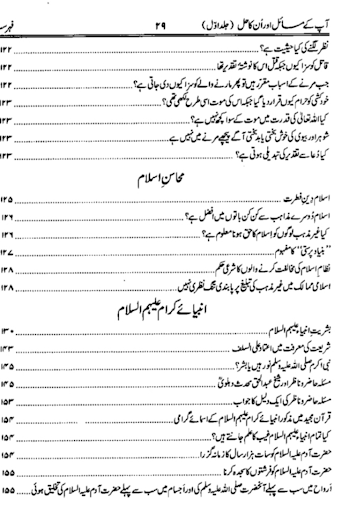 آپ کے مسائل اور اُن کا حل (جلد اوّل) ۲۹ فہرست
نظر لگنے کی کیا حیثیت ہے؟ ۱۲۲
قاتل کو سزا کیوں جبکہ قتل اس کا نوشتۂ تقدیر تھا ۱۲۲
جب مرنے کے اسباب مقرر ہیں تو پھر مارنے والے کو سزا کیوں دی جاتی ہے؟ ۱۲۲
خودکشی کو حرام کیوں قرار دیا گیا جبکہ اس کی موت اسی طرح لکھی تھی؟ ۱۲۳
کیا اللہ تعالیٰ کی قدرت میں موت کے سوا کچھ نہیں ہے؟ ۱۲۳
شوہر اور بیوی کی خوش بختی یا بدبختی آگے پیچھے مرنے میں نہیں ہے ۱۲۳
کیا دُعا سے تقدیر کی تبدیلی ہوتی ہے؟ ۱۲۳
محاسنِ اسلام
اسلام دینِ فطرت ۱۲۵
اسلام دُوسرے مذاہب سے کن کن باتوں میں افضل ہے؟ ۱۲۶
کیا غیرمذہب لوگوں کو اسلام کا حق ہونا معلوم ہے؟ ۱۲۶
”بنیاد پرستی“ کا مفہوم ۱۲۷
نظامِ اسلام کی مخالفت کرنے والوں کا شرعی حکم ۱۲۸
اسلامی ممالک میں غیرمذہب کی تبلیغ پر پابندی تنگ نظری نہیں ۱۲۸
انبیائے کرام علیہم السلام
بشریتِ انبیاء علیہم السلام ۱۳۰
شریعت کی معرفت میں اعتماد علی السلف ۱۴۳
نبی اکرم صلی اللہ علیہ وسلم نور ہیں یا بشر؟ ۱۴۵
مسئلہ حاضر و ناظر اور شیخ عبدالحق محدث دہلویؒ ۱۴۵
مسئلہ حاضر و ناظر کی ایک دلیل کا جواب ۱۵۳
قرآن مجید میں مذکور انبیائے کرام علیہم السلام کے اسمائے گرامی ۱۵۴
کیا تمام انبیاء علیہم السلام غیب کا علم جانتے ہیں؟ ۱۵۴
حضرت آدم علیہ السلام کو سات ہزار سال کا زمانہ گزرا ۱۵۴
حضرت آدم علیہ السلام کو فرشتوں کا سجدہ کرنا ۱۵۵
اَرواح میں سب سے پہلے آنحضرت صلی اللہ علیہ وسلم کی اور اَجسام میں سب سے پہلے حضرت آدم علیہ السلام کی تخلیق ہوئی ۱۵۵